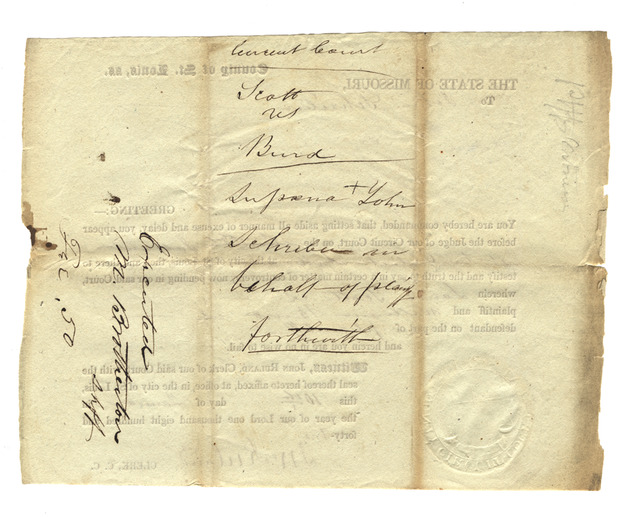 Circuit Court
Scott
vs
Burd
Supoena + John
in
behalf of
forthwith
Executed
M. Brotherton
Shff
Fee .50
THE STATE OF MISSOURI,
County of St. Louis, ss.
To
GREETING:—
You are hereby commanded, that setting aside all manner of excuse and delay, you appear
before the Judge of our Circuit Court on
testify and the truth to say in a certain matter of controversy now pending in our said Court,
wherein
plaintiff and
defendant on the part of
and herein you are in no wise to fail.
Witness, JOHN RULAND, Clerk of our said Court with the
seal thereof hereto affixed, at office in the city of St. Louis,
this day of
the year of our Lord one thousand eight hundred and
forty-
CLERK, C. C.